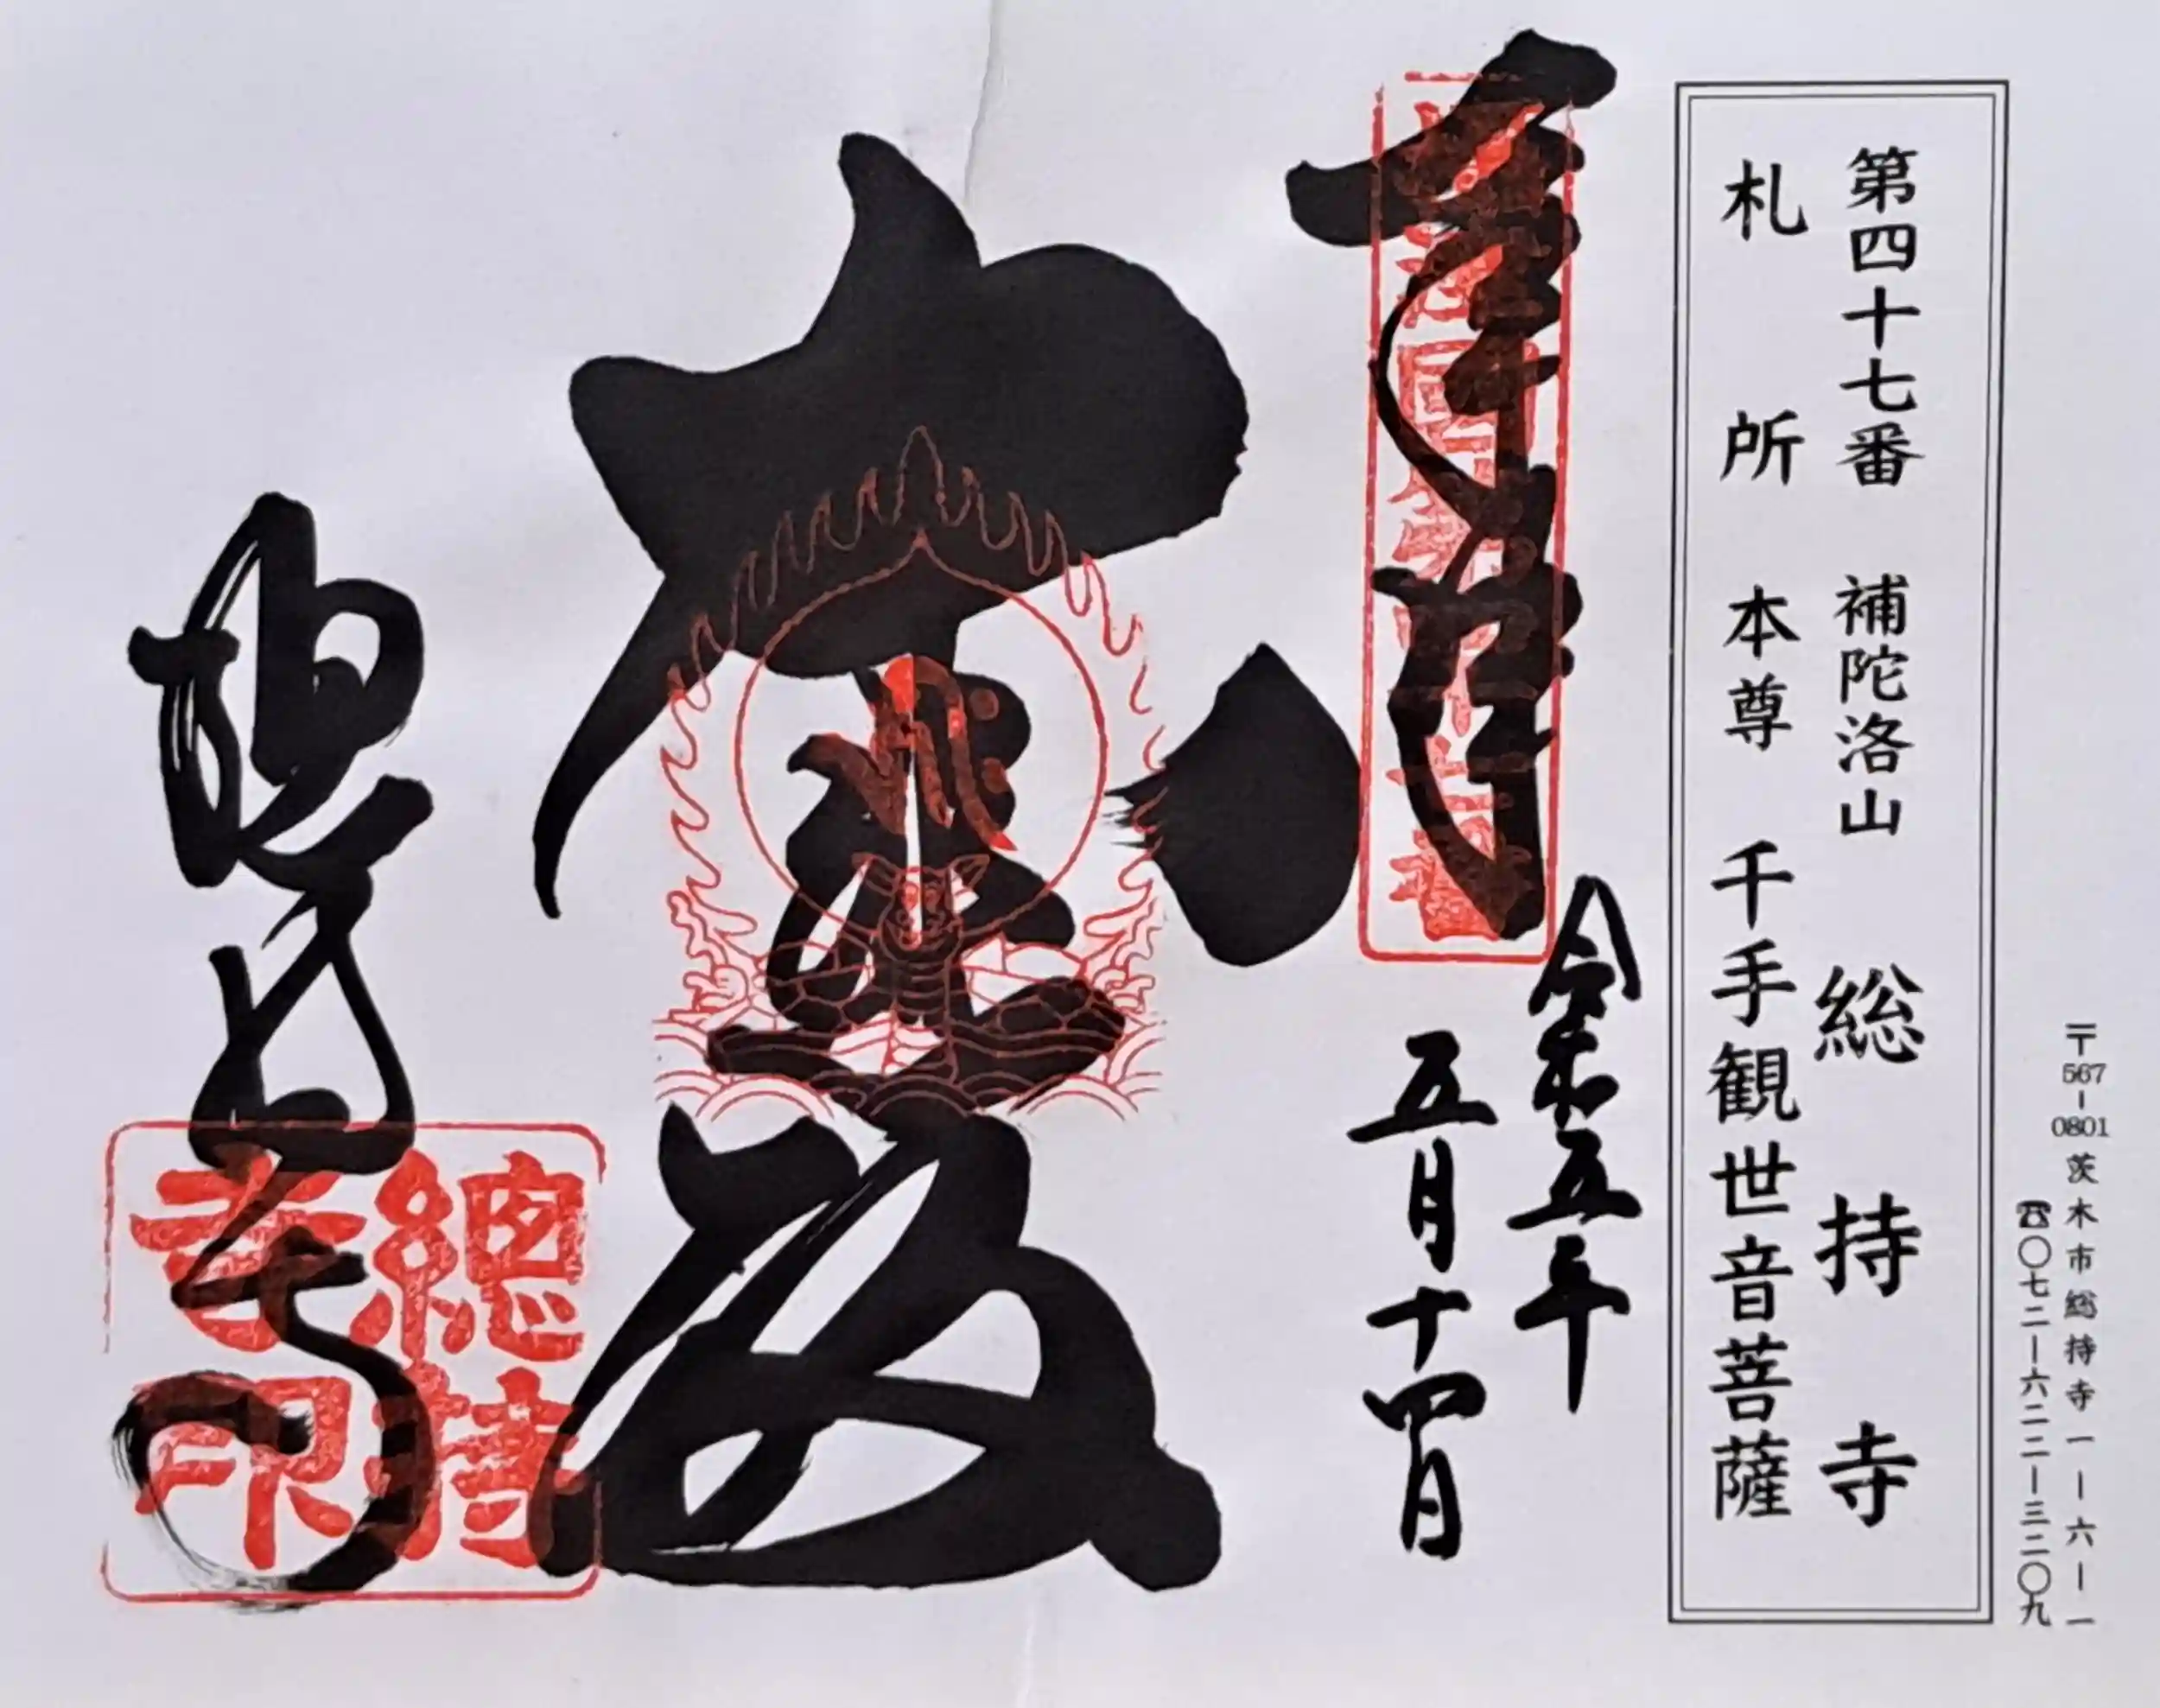 〒567-0801茨木市総持寺一ー六ー一
☎〇七二ー六二二ー三二〇九
第四十七番 補陀洛山 総持寺
札所 本尊 千手観世音菩薩
奉拝
令和五年
五月十四日
大悲殿
総持寺
總持
寺印